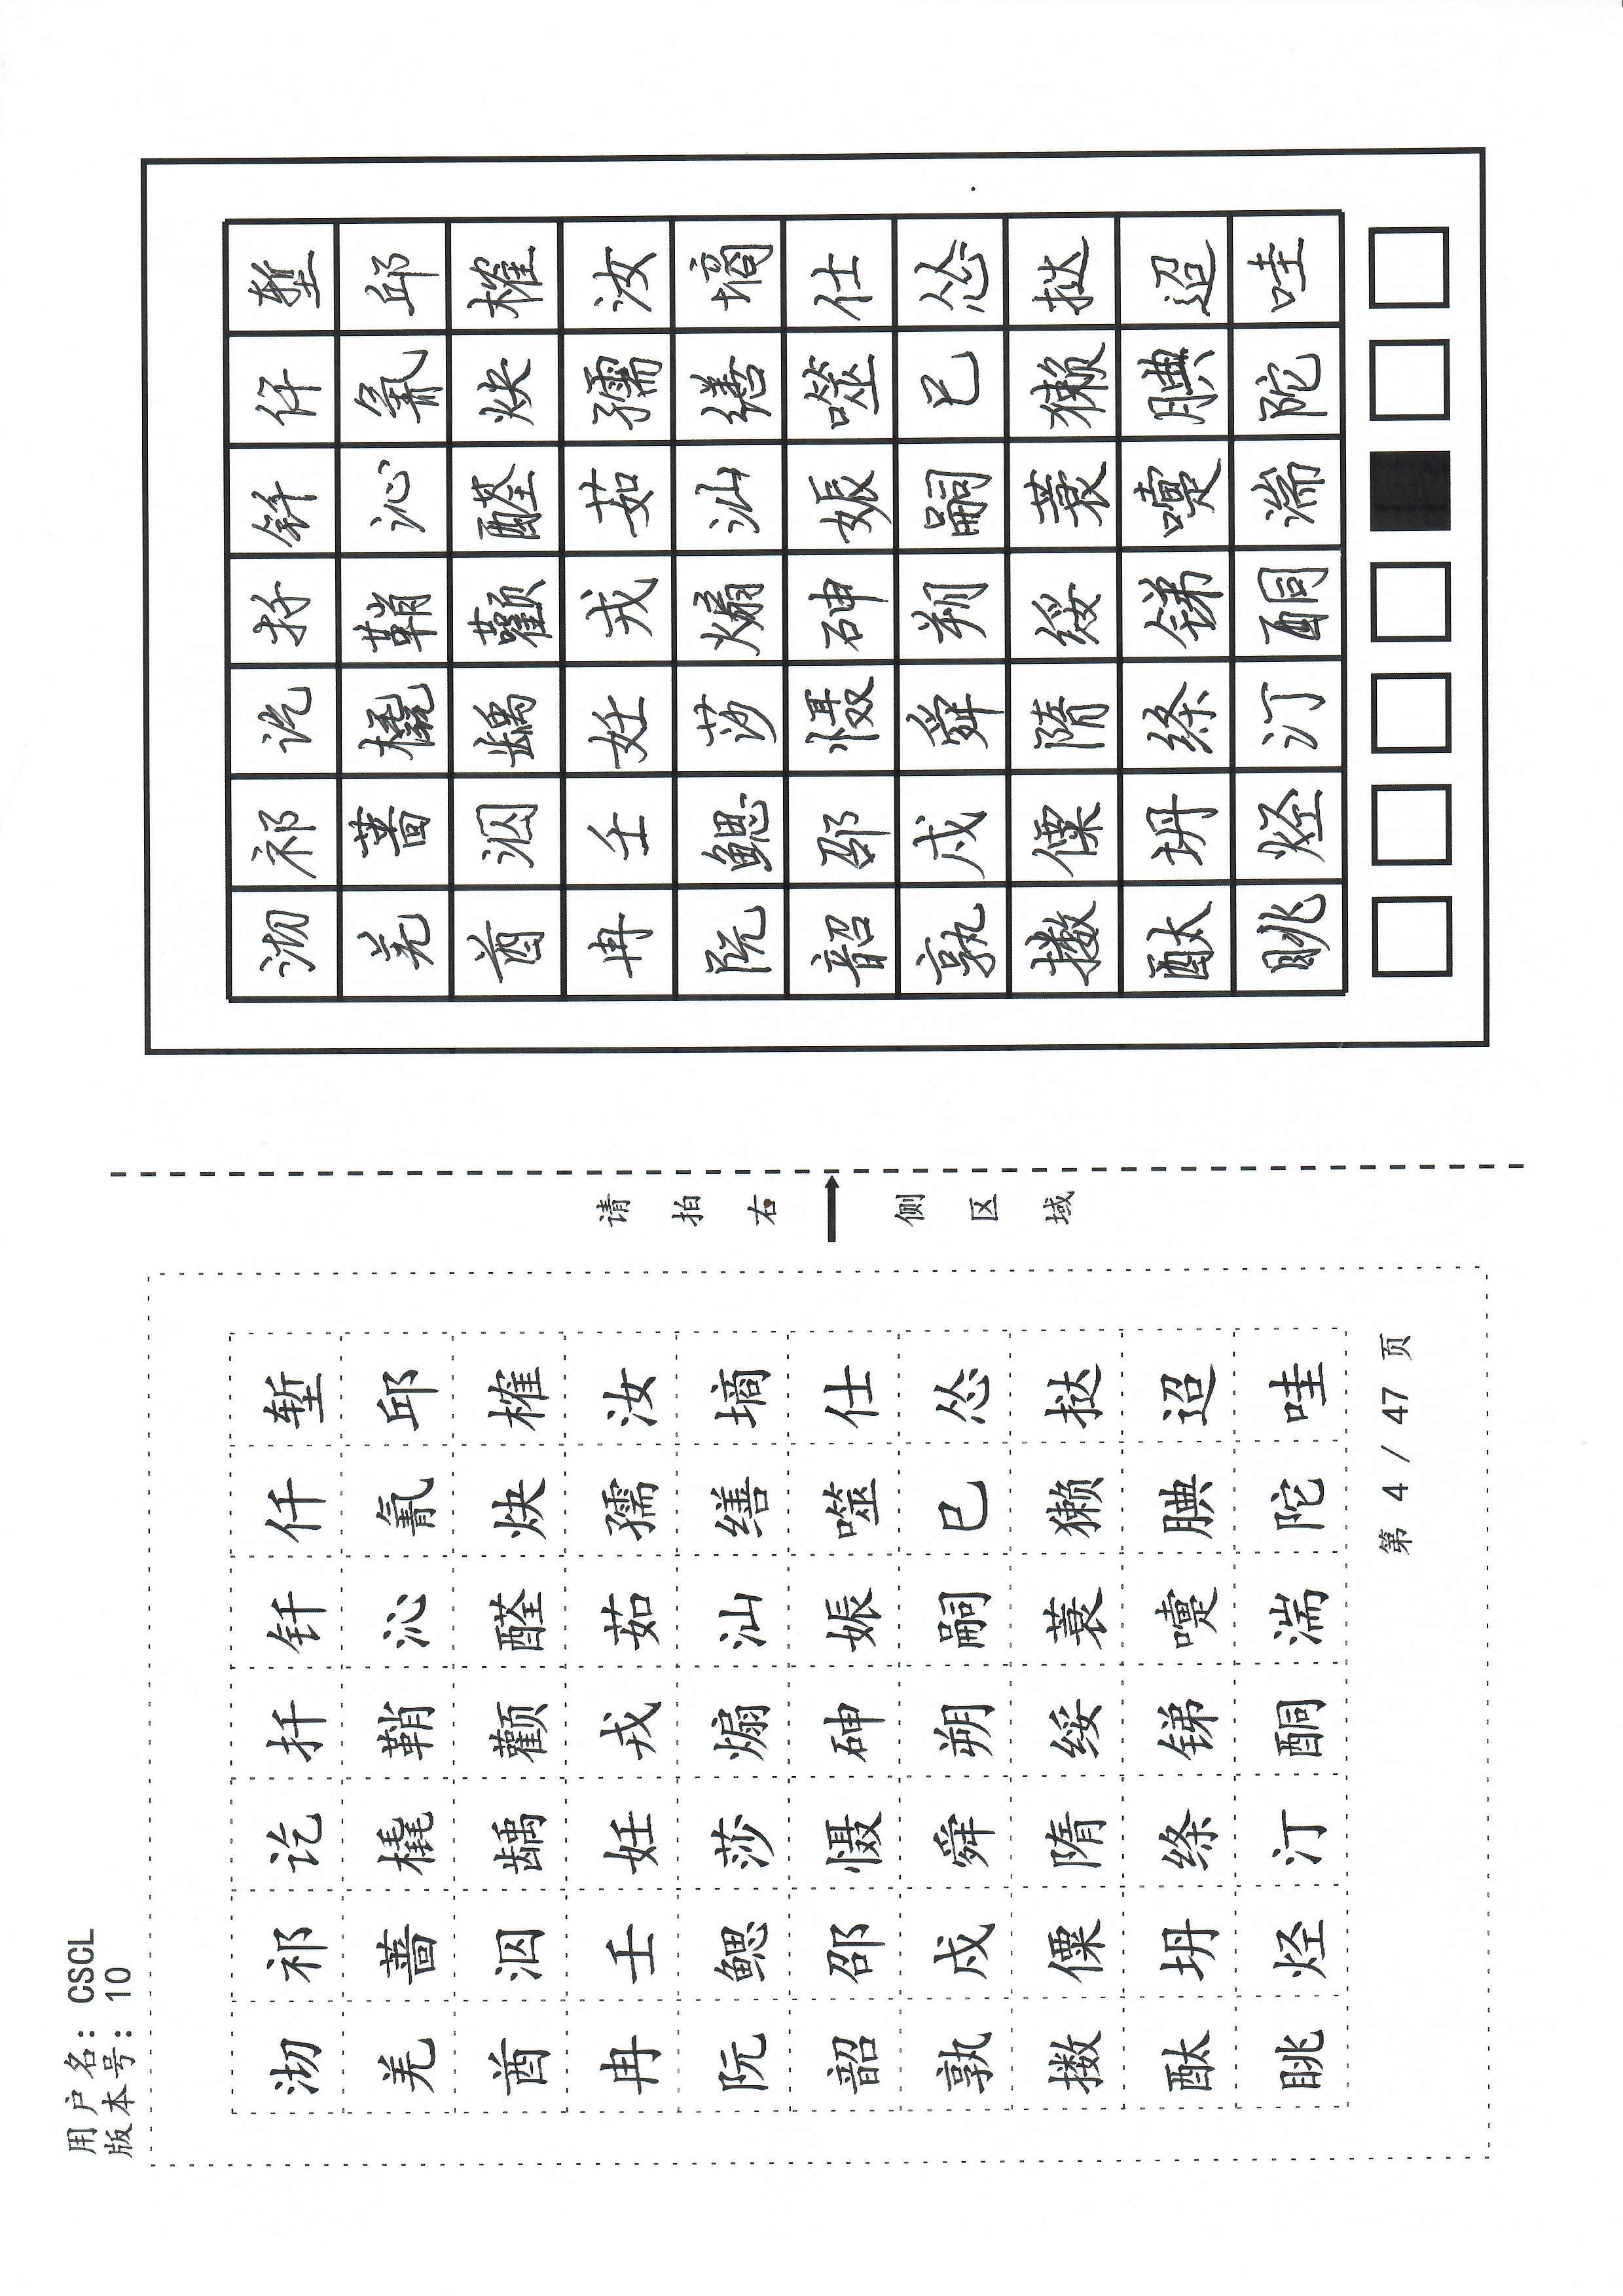 用户名：CSCL
版本号：10
沏 祁 讫 扦 钎 仟 堑
羌 蔷 橇 鞘 沁 氰 邱
酋 泅 龋 颧 醛 炔 榷
冉 壬 妊 戎 茹 孺 汝
阮 鳃 莎 煽 汕 缮 墒
韶 邵 慑 砷 娠 噬 仕
孰 戍 舜 朔 嗣 巳 怂
擞 僳 隋 绥 蓑 獭 挞
酞 坍 绦 锑 嚏 腆 迢
眺 烃 汀 酮 湍 陀 哇
第 4 / 47 页
请拍右侧区域
沏 祁 讫 扦 钎 仟 堑
羌 蔷 橇 鞘 沁 氰 邱
酋 泅 龋 颧 醛 炔 榷
冉 壬 妊 戎 茹 孺 汝
阮 鳃 莎 煽 汕 缮 墒
韶 邵 慑 砷 娠 噬 仕
孰 戍 舜 朔 嗣 巳 怂
擞 僳 隋 绥 蓑 獭 挞
酞 坍 绦 锑 嚏 腆 迢
眺 烃 汀 酮 湍 陀 哇